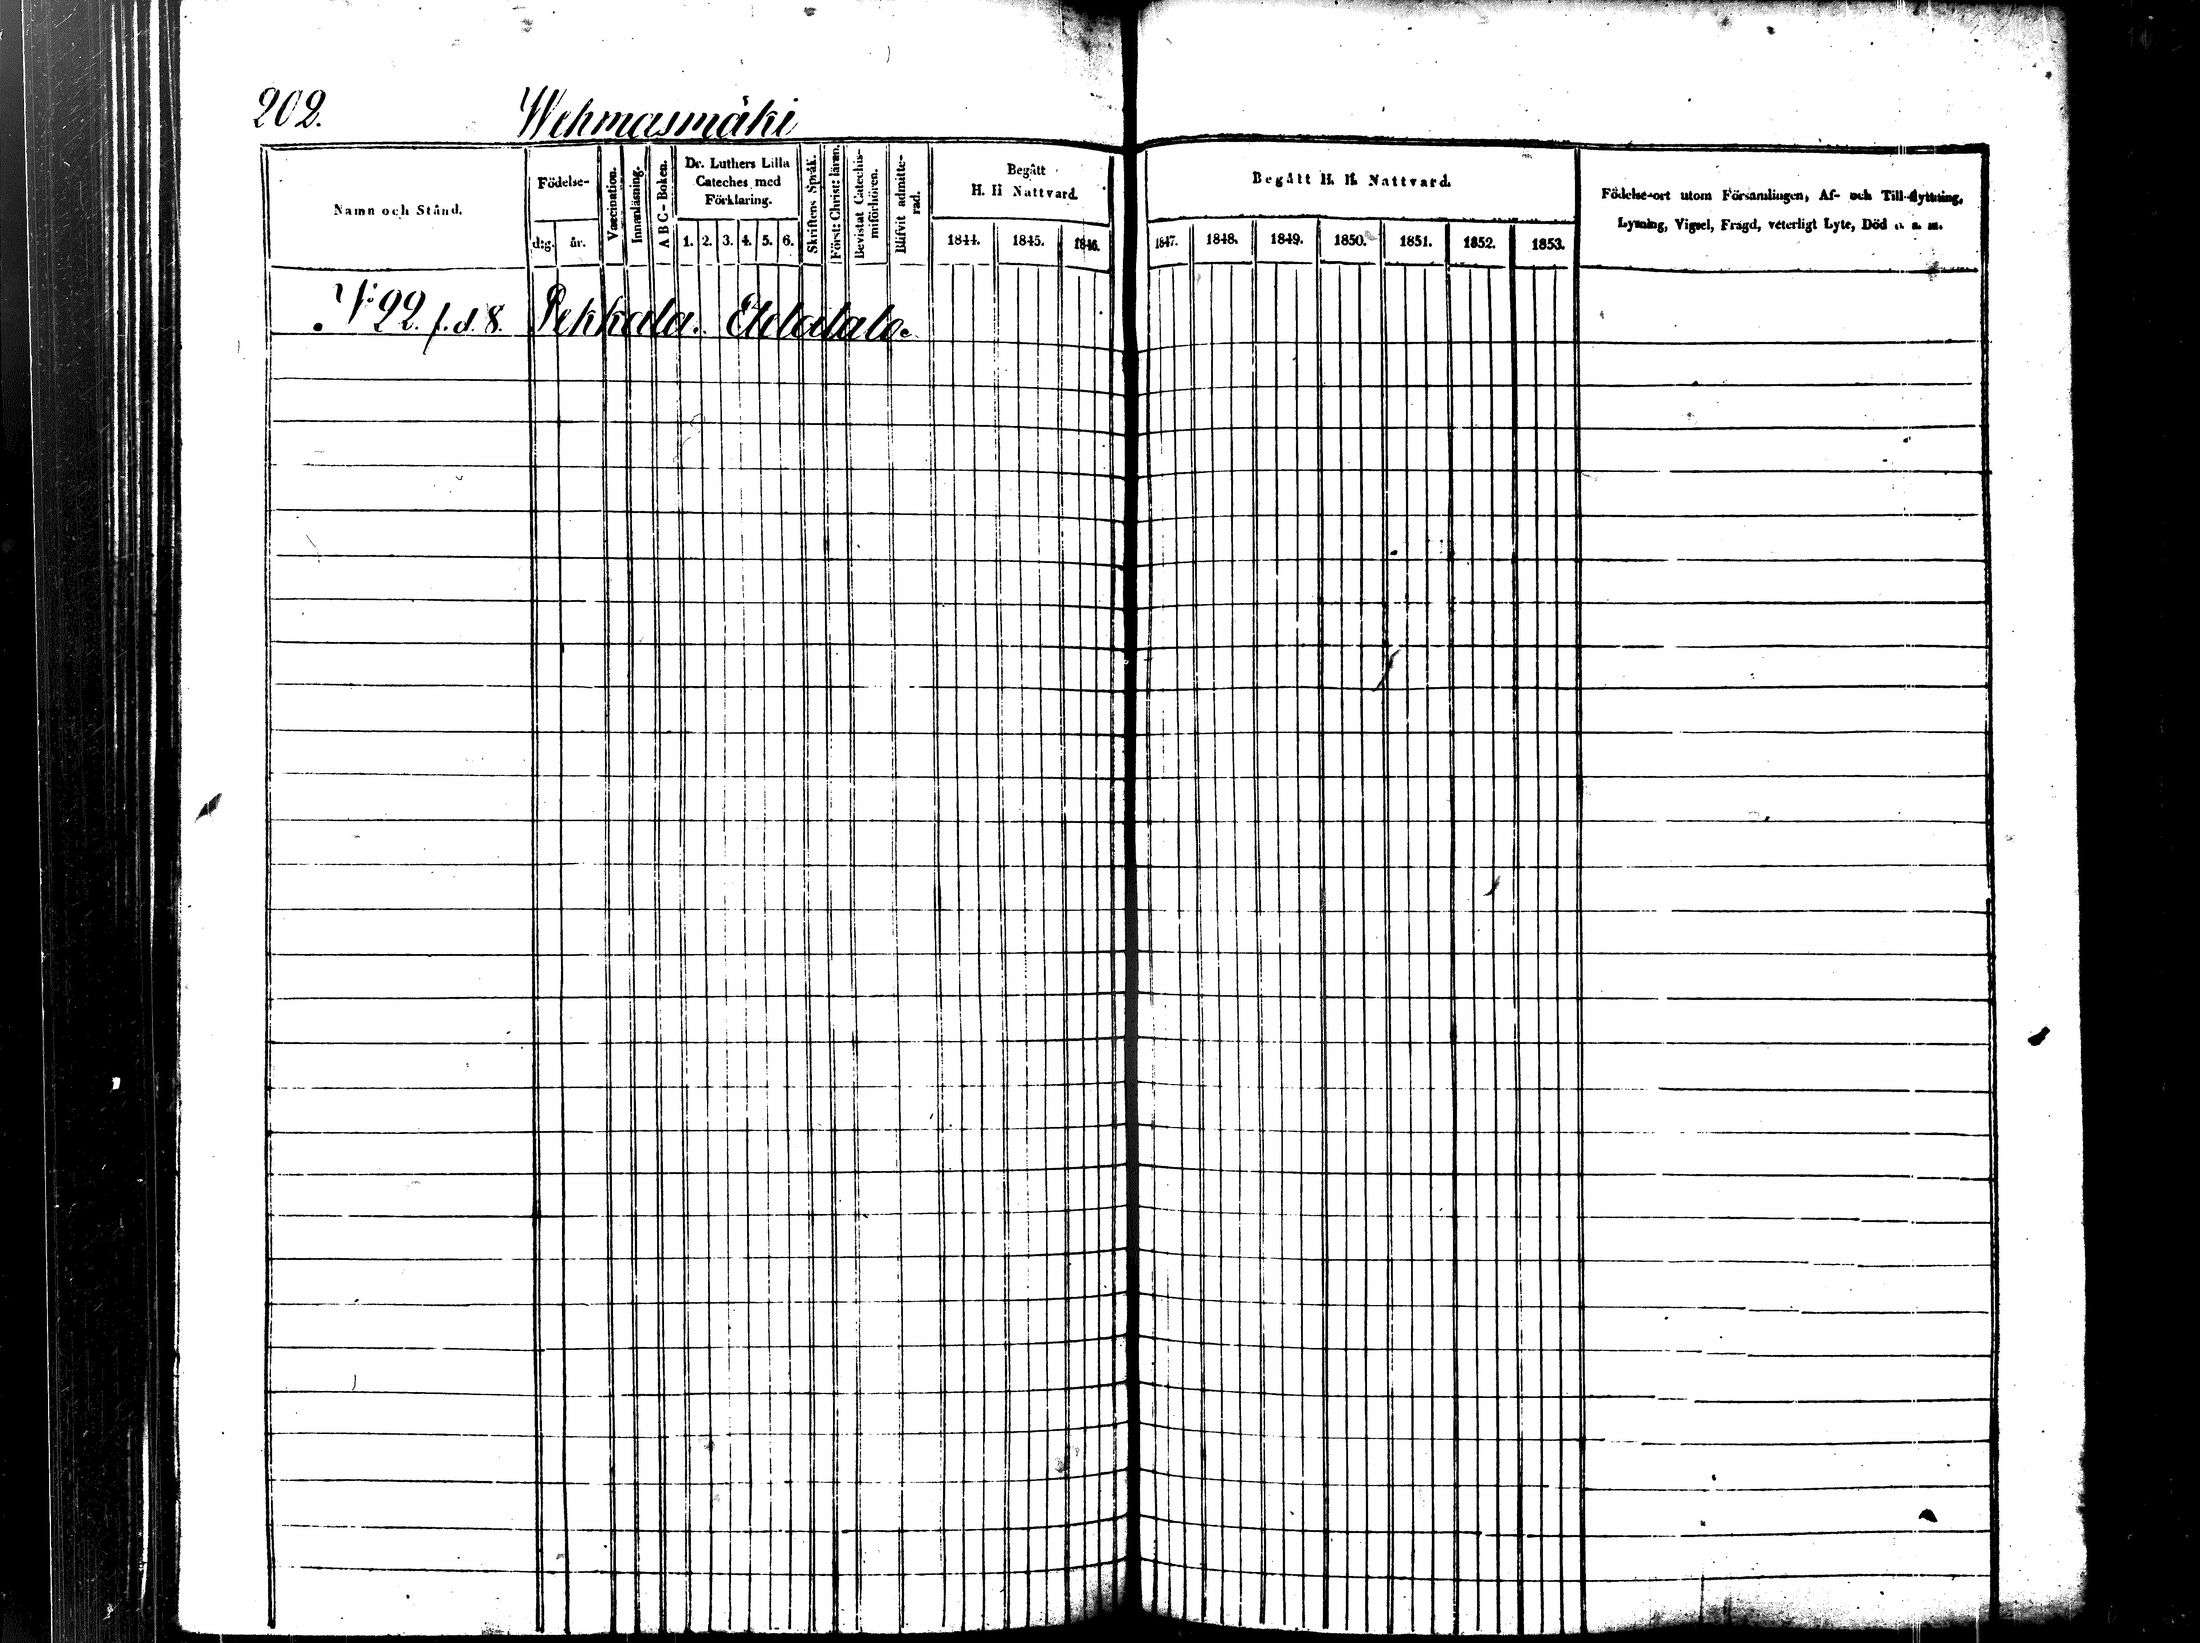 202. Wehmasmäki
Namn och Stånd.
Födelse-
d:g. år.
Vaccination.
Innanläsning.
A B C - Boken.
Dr. Luthers Lilla
Cateches med
Förklaring.
1. 2. 3. 4. 5. 6.
Skriftens Språk.
Först: Christ: läran.
Bevistat Catechis-
miförhören.
Blifvit admitte-
rad.
Begått
H. H Nattvard.
1844. 1845. 1846.
Begått H. H. Nattvard.
1847. 1848. 1849. 1850. 1851. 1852. 1853.
Födelse-ort utom Församlingen, Af- och Till-flyttning,
Lysning, Vigsel, Frägd, veterligt Lyte, Död o. s. m.
N:o 22. f. d. 8. Pekkala. Etelätalo.